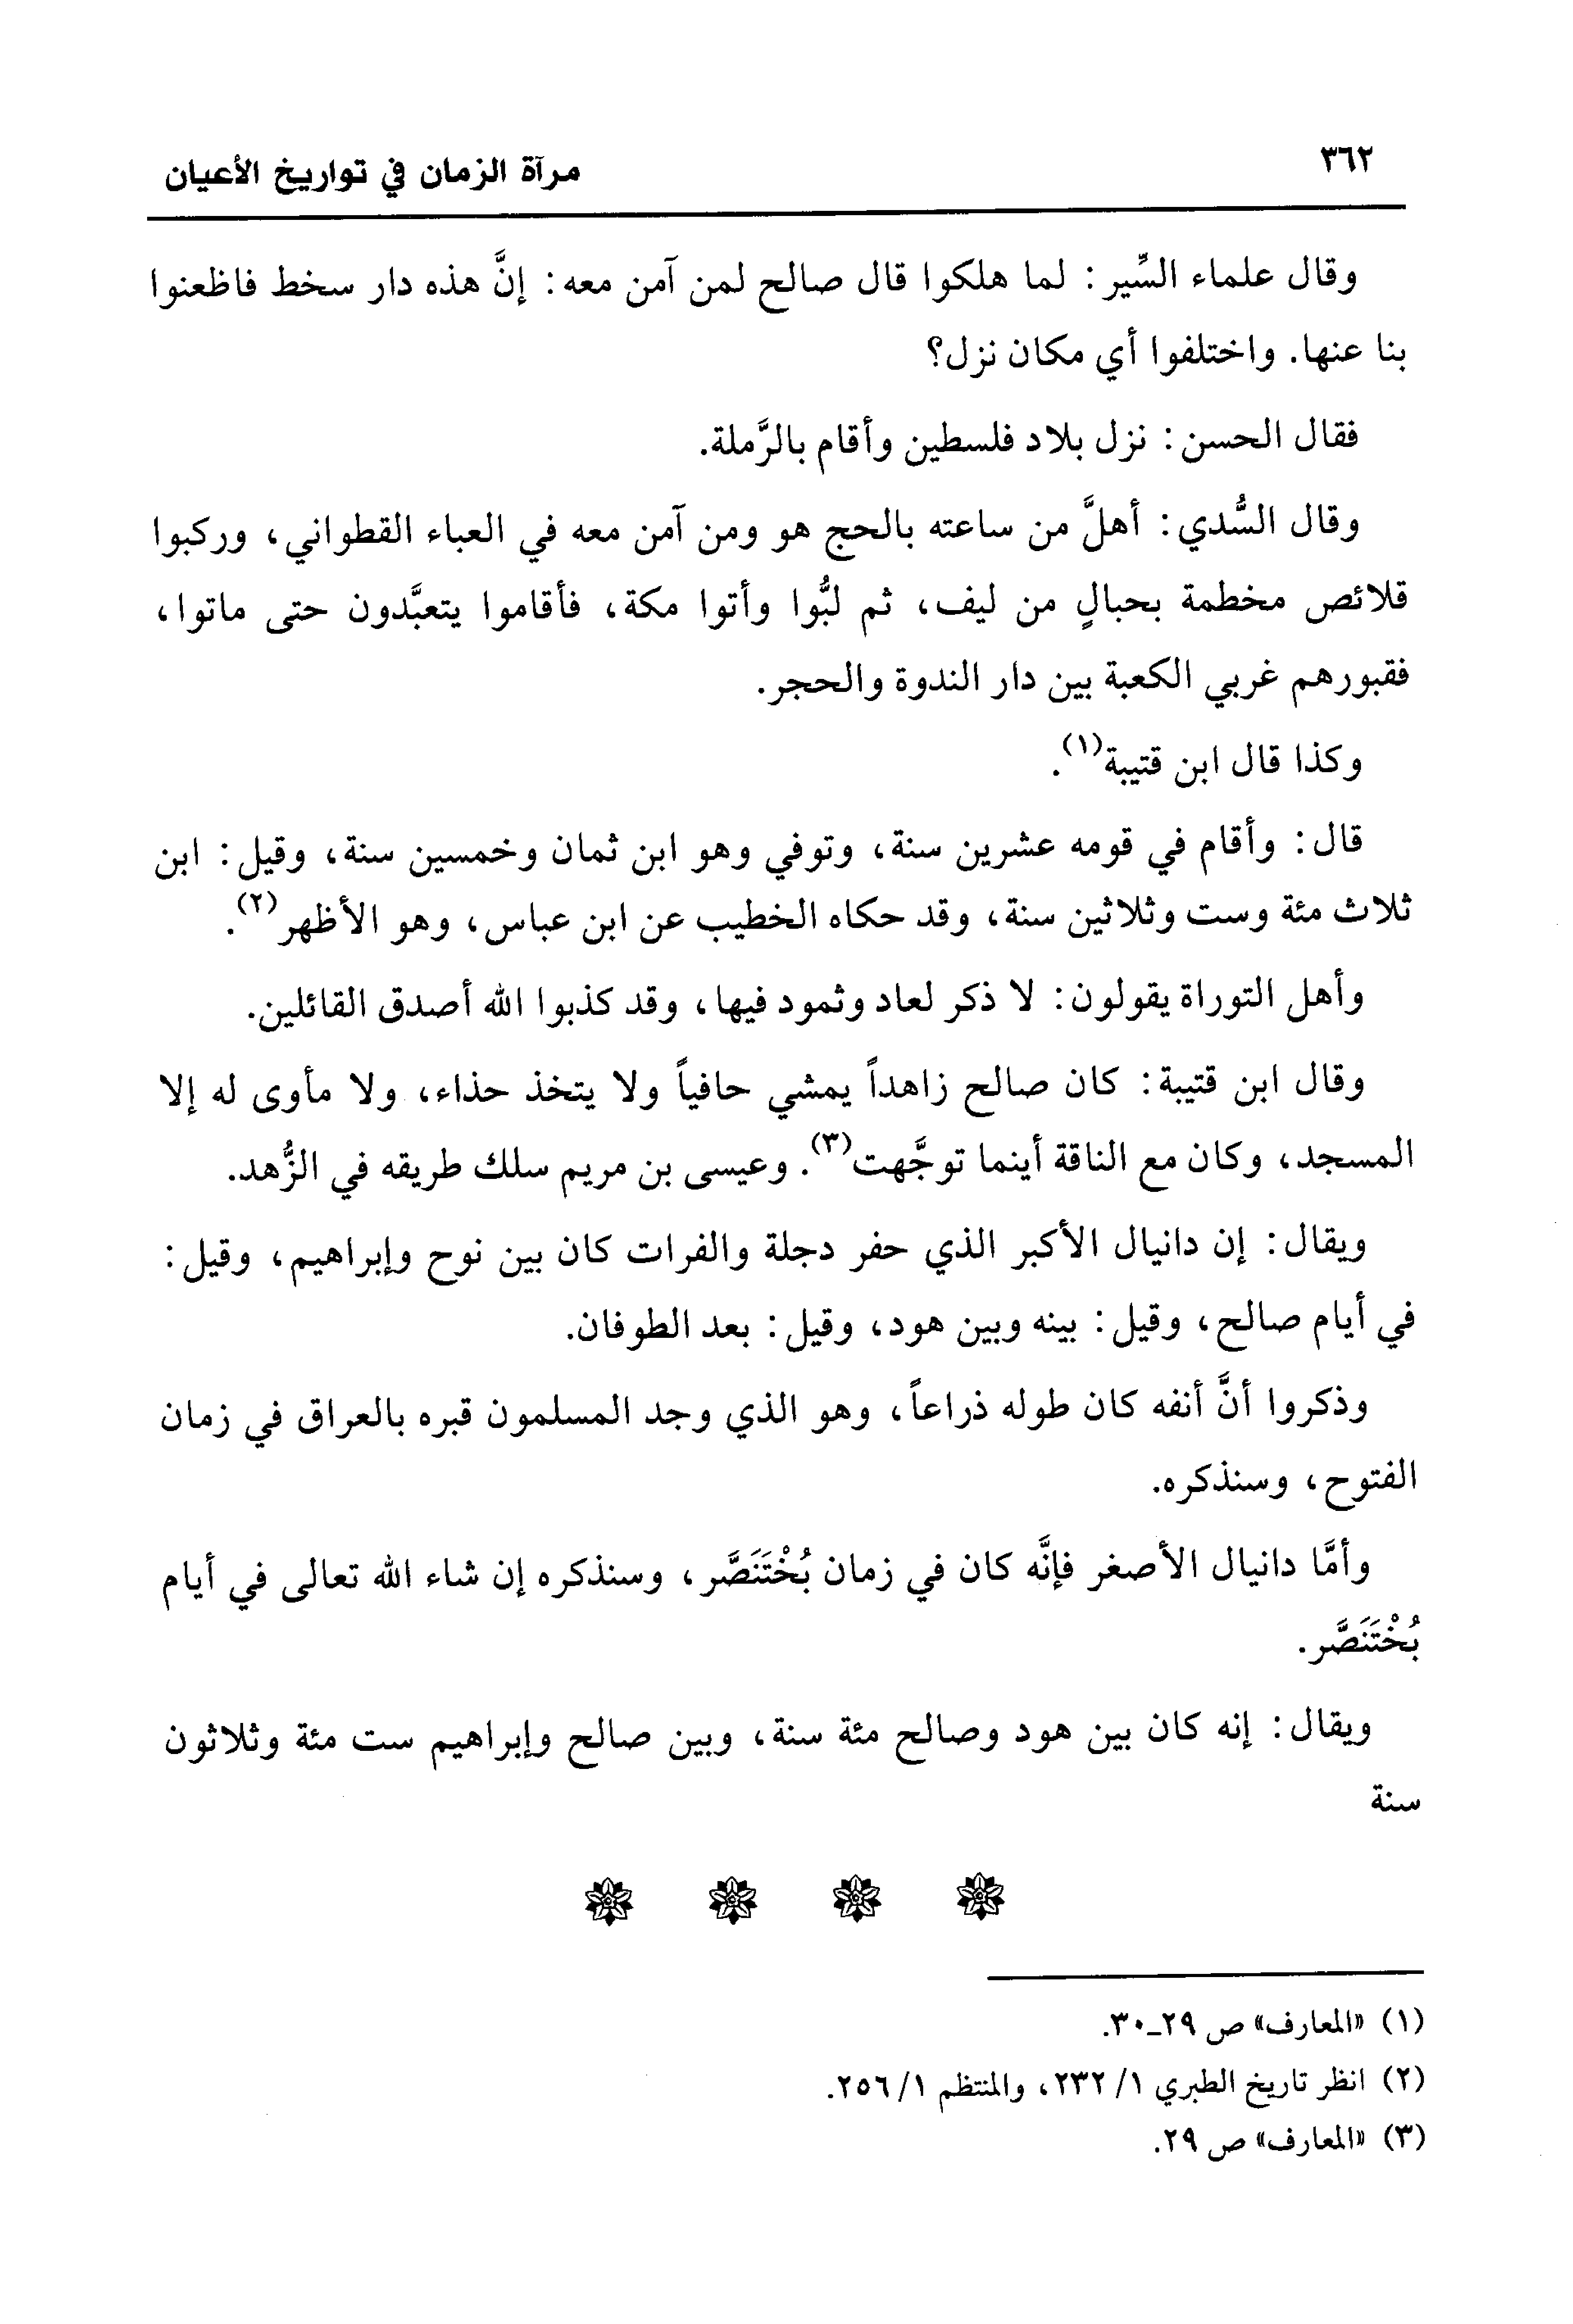 ٣٦٢
مرآة الزمان في تواريخ الأعيان
وقال علماء السِّير: لما هلكوا قال صالح لمن آمن معه: إنَّ هذه دار سخط فاظعنوا
بنا عنها. واختلفوا أي مكان نزل؟
فقال الحسن: نزل بلاد فلسطين وأقام بالرَّملة.
وقال السُّدي: أهلَّ من ساعته بالحج هو ومن آمن معه في العباء القطواني، وركبوا
قلائص مخطمة بحبالٍ من ليف، ثم لبُّوا وأتوا مكة، فأقاموا يتعبَّدون حتى ماتوا،
فقبورهم غربي الكعبة بين دار الندوة والحجر.
وكذا قال ابن قتيبة(١).
قال: وأقام في قومه عشرين سنة، وتوفي وهو ابن ثمان وخمسين سنة، وقيل: ابن
ثلاث مئة وست وثلاثين سنة، وقد حكاه الخطيب عن ابن عباس، وهو الأظهر(٢).
وأهل التوراة يقولون: لا ذكر لعاد وثمود فيها، وقد كذبوا الله أصدق القائلين.
وقال ابن قتيبة: كان صالح زاهداً يمشي حافياً ولا يتخذ حذاء، ولا مأوى له إلا
المسجد، وكان مع الناقة أينما توجَّهت(٣). وعيسى بن مريم سلك طريقه في الزُّهد.
ويقال: إن دانيال الأكبر الذي حفر دجلة والفرات كان بين نوح وإبراهيم، وقيل:
في أيام صالح، وقيل: بينه وبين هود، وقيل: بعد الطوفان.
وذكروا أنَّ أنفه كان طوله ذراعاً، وهو الذي وجد المسلمون قبره بالعراق في زمان
الفتوح، وسنذكره.
وأمَّا دانيال الأصغر فإنَّه كان في زمان بُخْتَنَصَّر، وسنذكره إن شاء الله تعالى في أيام
بُخْتَنَصَّر.
ويقال: إنه كان بين هود وصالح مئة سنة، وبين صالح وإبراهيم ست مئة وثلاثون
سنة
(١) «المعارف» ص ٢٩-٣٠.
(٢) انظر تاريخ الطبري ١/ ٢٣٢، والمنتظم ١/ ٢٥٦.
(٣) «المعارف» ص ٢٩.